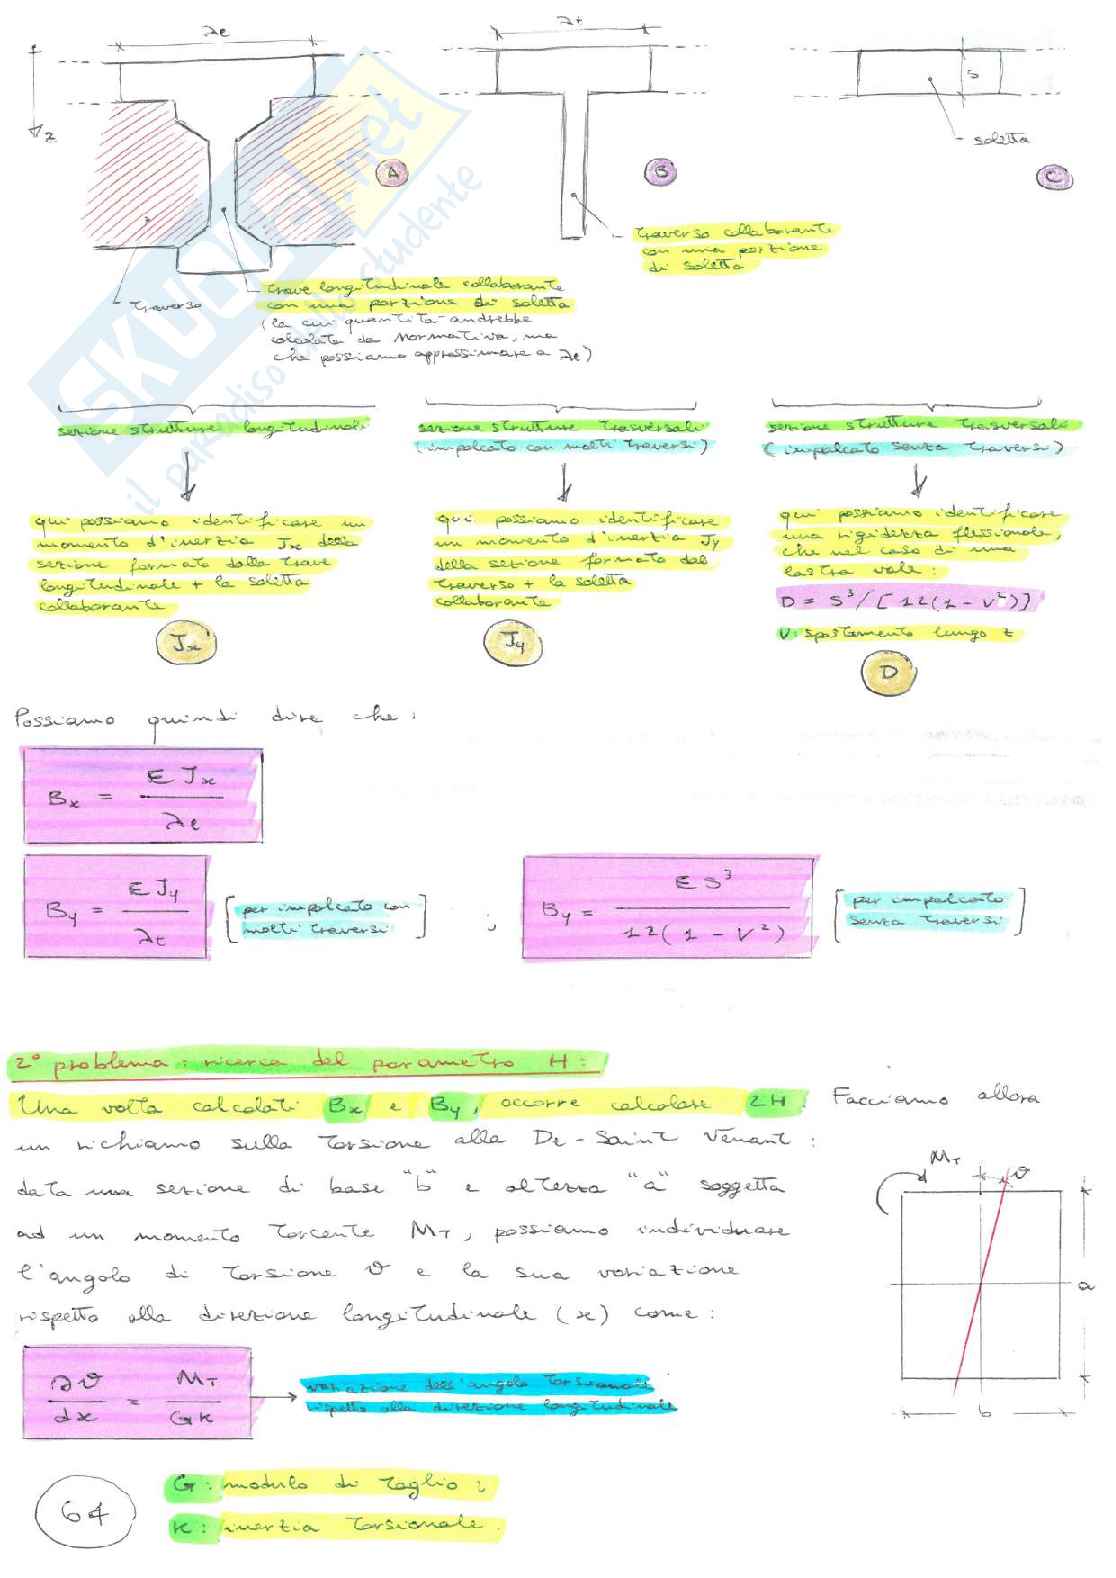 λe
λt
z
A
B
C
S
soletta
traverso collaborante
con una porzione
di soletta
traverso
trave longitudinale collaborante
con una porzione di soletta
(la cui quantità andrebbe
calcolata da Normativa, ma
che possiamo approssimare a λe)
SKUOLA.net
il paradiso dello studente
sezione strutture longitudinali
sezione strutture trasversali
(impalcato con molti traversi)
sezione strutture trasversali
(impalcato senza traversi)
qui possiamo identificare un
momento d'inerzia Jx della
sezione formata dalla trave
longitudinale + la soletta
collaborante
Jx
qui possiamo identificare
un momento d'inerzia Jy
della sezione formata dal
traverso + la soletta
collaborante
Jy
qui possiamo identificare
una rigidezza flessionale,
che nel caso di una
lastra vale:
D = S³/[12(1-V²)]
V: spostamento lungo z
D
Possiamo quindi dire che:
Bx = E Jx / λe
By = E Jy / λt [per impalcato con molti traversi] ;
By = E S³ / 12(1-V²) [per impalcato senza traversi]
2° problema: ricerca del parametro H:
Una volta calcolati Bx e By, occorre calcolare 2H. Facciamo allora
un richiamo sulla torsione alla De-Saint Venant:
data una sezione di base "b" e altezza "a" soggetta
ad un momento torcente MT, possiamo individuare
l'angolo di torsione ϑ e la sua variazione
rispetto alla direzione longitudinale (x) come:
MT
ϑ
a
b
∂ϑ/dx = MT/GK
variazione dell'angolo torsionale
rispetto alla direzione longitudinale
G: modulo di taglio;
K: inerzia torsionale.
64